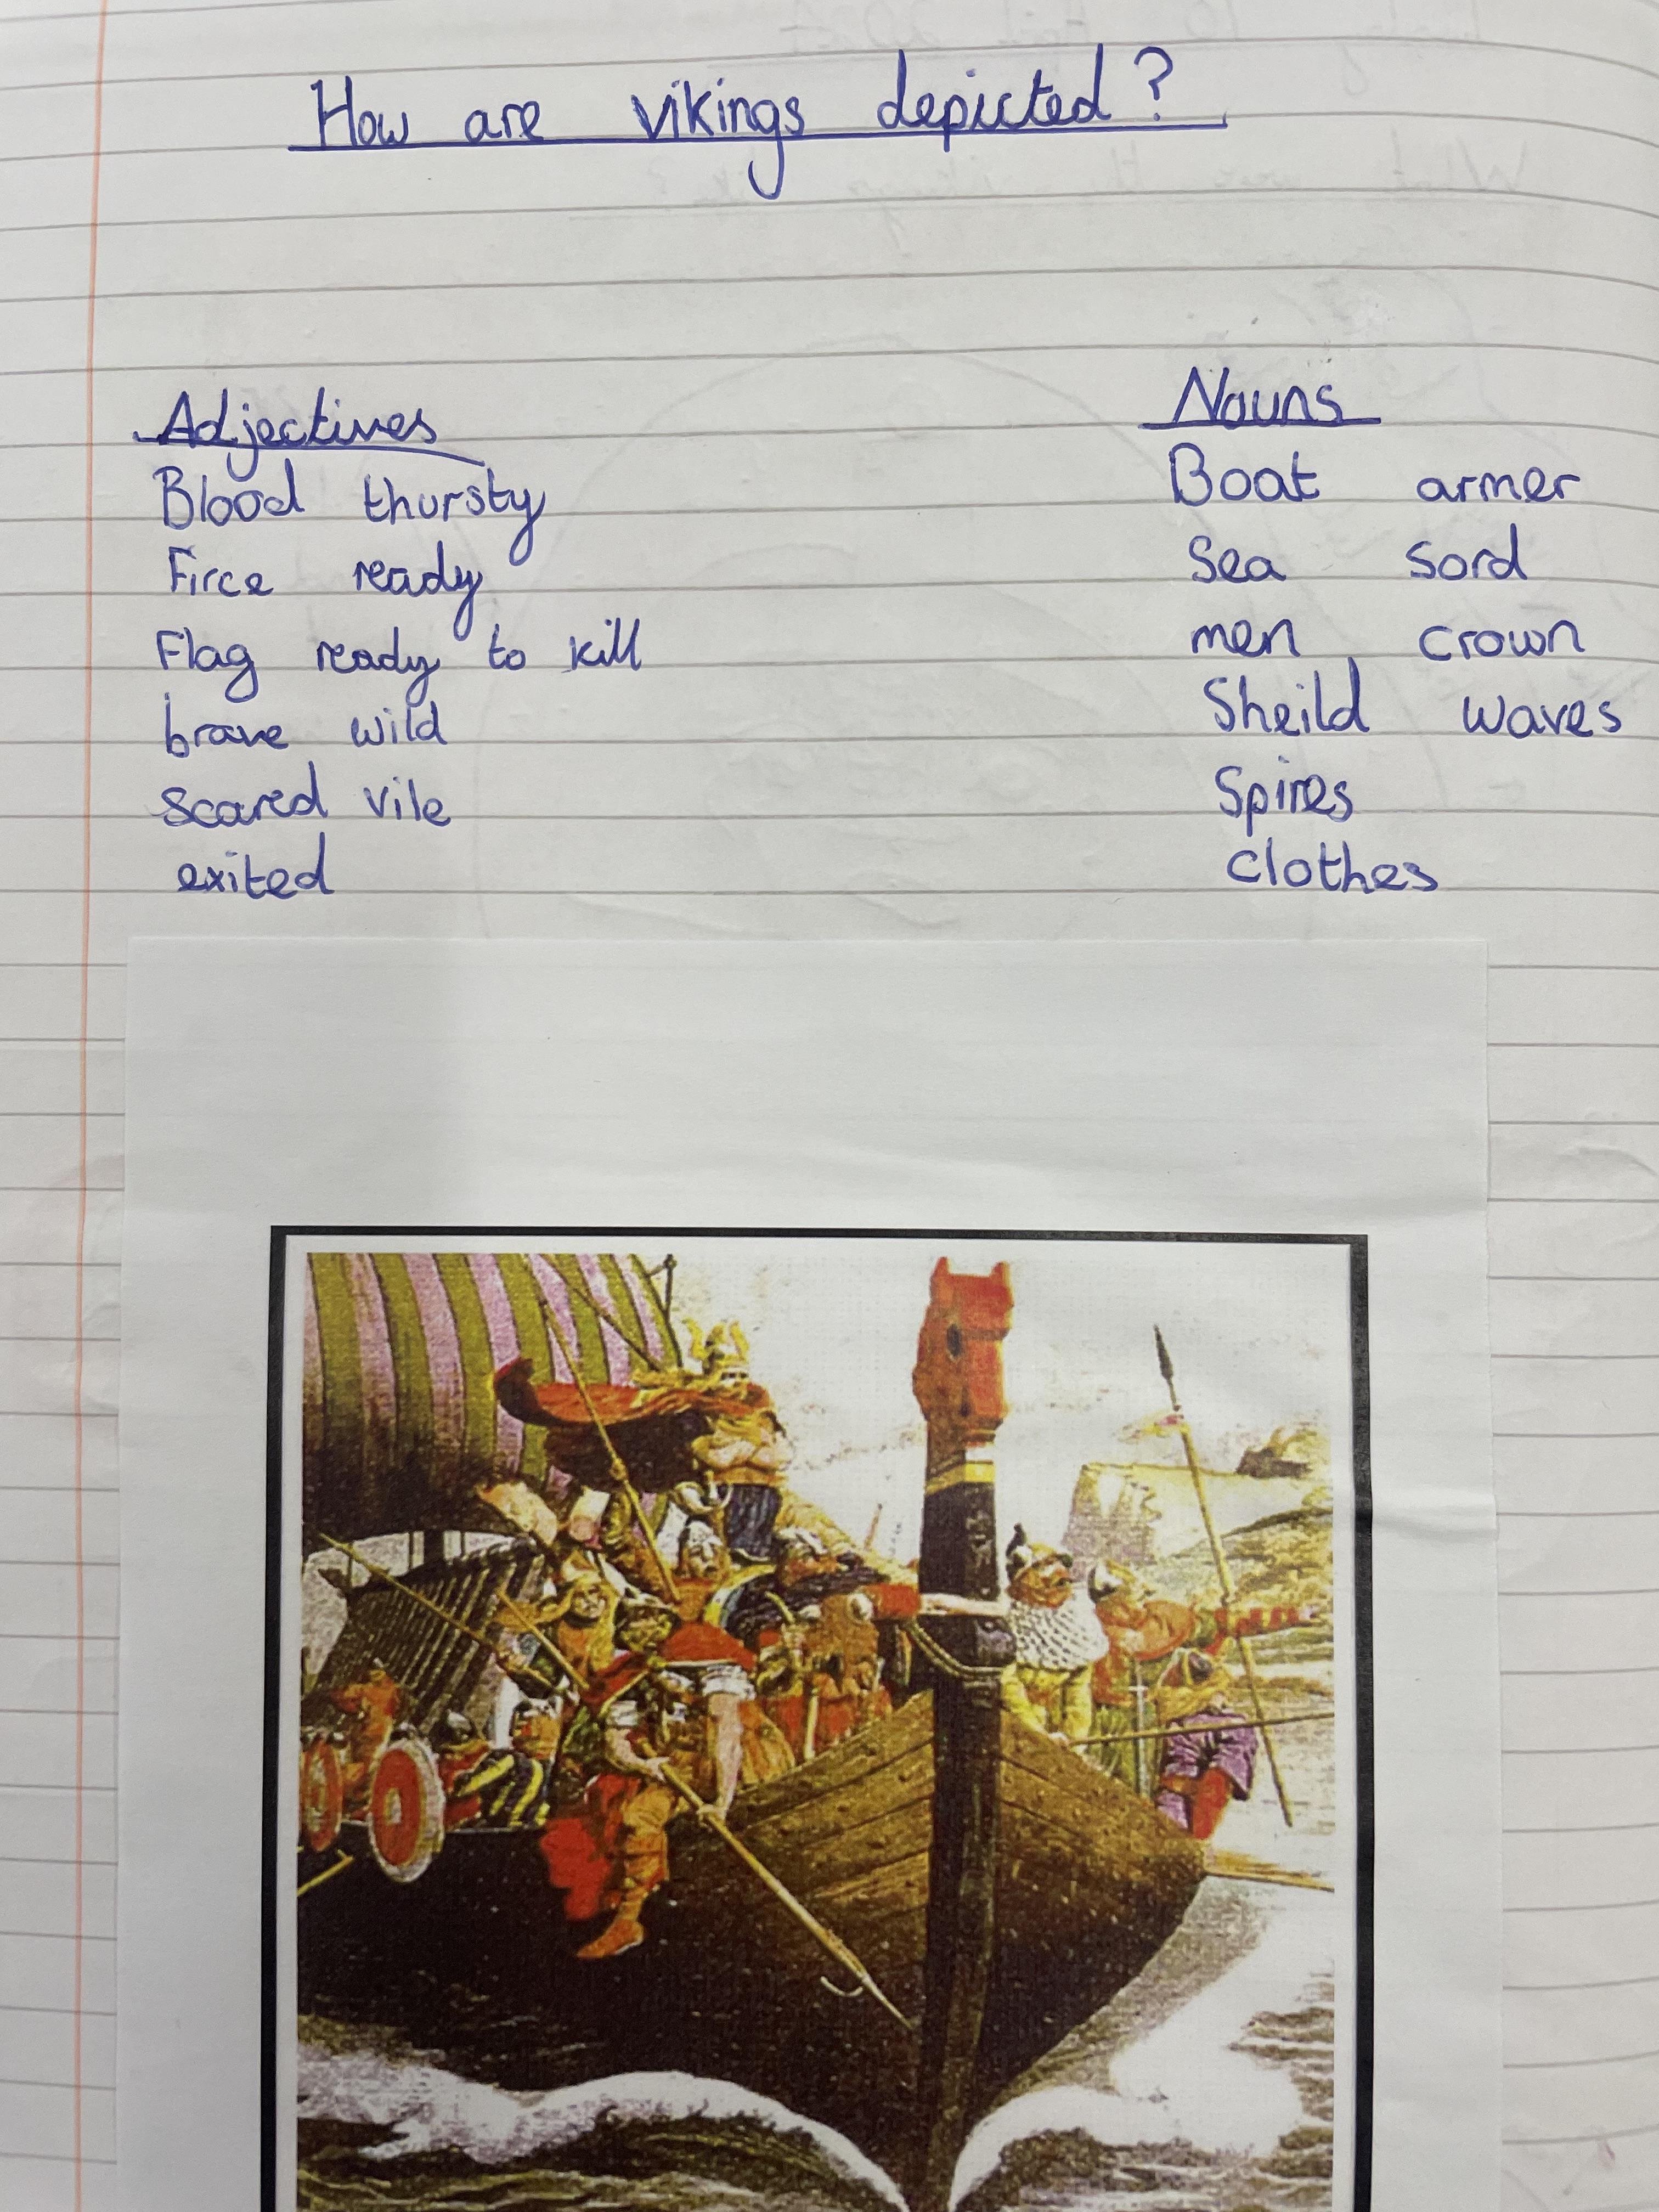 How are vikings depicted?
Adjectives
Blood thursty
Firce ready
Flag ready to kill
brave wild
scared vile
exited
Nouns
Boat armer
Sea sord
men crown
Sheild waves
Spires
clothes